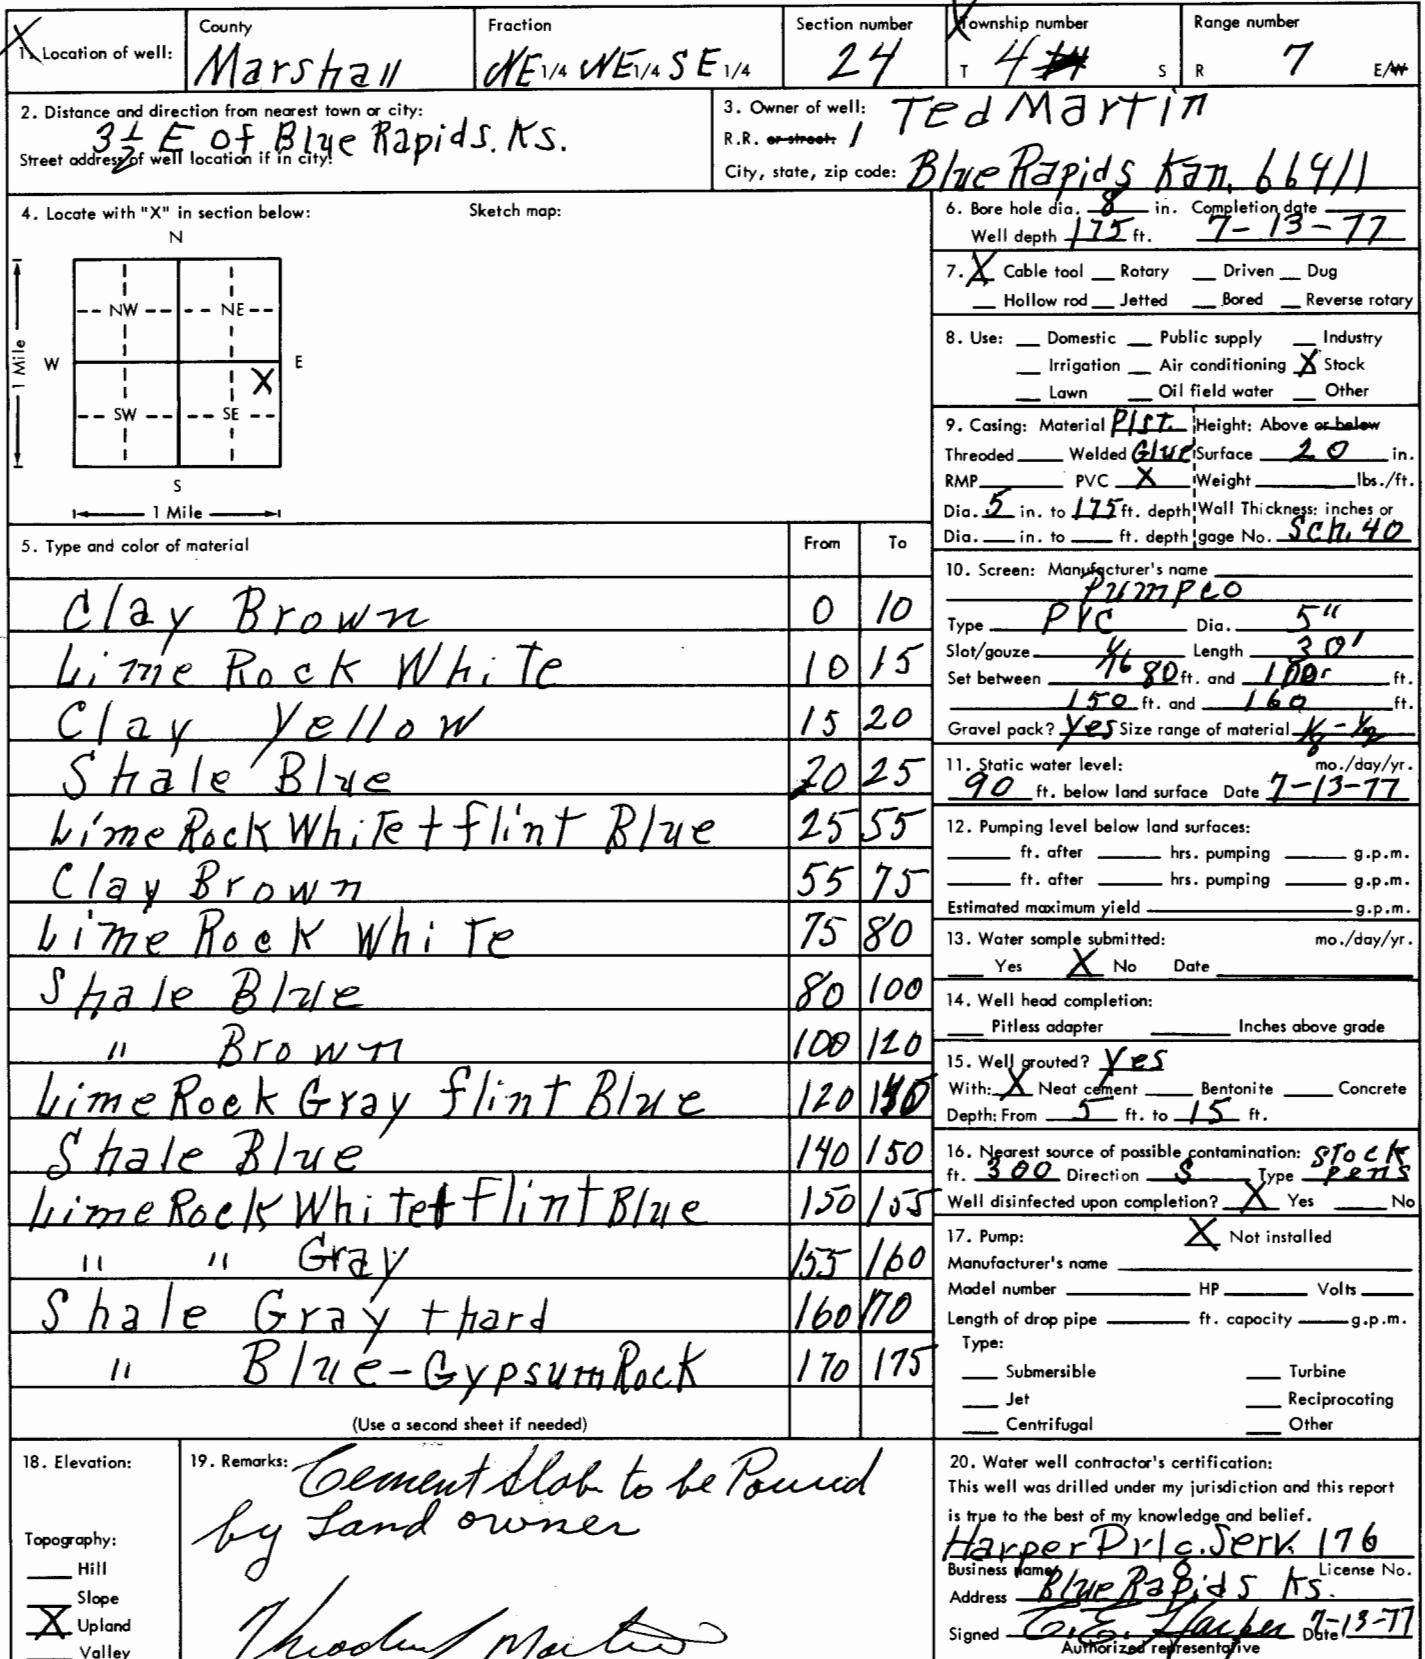 1. Location of well: County Marshall Fraction NE 1/4 NE 1/4 SE 1/4 Section number 24 Township number T 4 S Range number R 7 E/W
2. Distance and direction from nearest town or city:
3 1/2 E of Blue Rapids. Ks.
Street address of well location if in city:
3. Owner of well: Ted Martin
R.R. or street: 1
City, state, zip code: Blue Rapids Kan. 66411
4. Locate with "X" in section below: Sketch map:
N
NW NE
W E
X
SW SE
S
1 Mile
1 Mile
6. Bore hole dia. 8 in. Completion date
Well depth 175 ft. 7-13-77
7. X Cable tool Rotary Driven Dug
Hollow rod Jetted Bored Reverse rotary
8. Use: Domestic Public supply Industry
Irrigation Air conditioning X Stock
Lawn Oil field water Other
9. Casing: Material Plst. Height: Above or below
Threaded Welded Glue Surface 20 in.
RMP PVC X Weight lbs./ft.
Dia. 5 in. to 175 ft. depth Wall Thickness: inches or
Dia. in. to ft. depth gage No. Sch. 40
5. Type and color of material From To
Clay Brown 0 10
Lime Rock White 10 15
Clay Yellow 15 20
Shale Blue 20 25
Lime Rock White + flint Blue 25 55
Clay Brown 55 75
Lime Rock White 75 80
Shale Blue 80 100
" Brown 100 120
Lime Rock Gray flint Blue 120
Shale Blue 140 150
Lime Rock White + Flint Blue 150 155
" " Gray 155 160
Shale Gray + hard 160 170
" Blue-Gypsum Rock 170 175
(Use a second sheet if needed)
10. Screen: Manufacturer's name
Pumpco
Type PVC Dia. 5"
Slot/gauze 1/16 Length 30'
Set between 80 ft. and 100 ft.
150 ft. and 160 ft.
Gravel pack? Yes Size range of material 1/8 - 1/2
11. Static water level: mo./day/yr.
90 ft. below land surface Date 7-13-77
12. Pumping level below land surfaces:
ft. after hrs. pumping g.p.m.
ft. after hrs. pumping g.p.m.
Estimated maximum yield g.p.m.
13. Water sample submitted: mo./day/yr.
Yes X No Date
14. Well head completion:
Pitless adapter Inches above grade
15. Well grouted? Yes
With: X Neat cement Bentonite Concrete
Depth: From 5 ft. to 15 ft.
16. Nearest source of possible contamination: Stock
ft. 300 Direction S Type Pens
Well disinfected upon completion? X Yes No
17. Pump: X Not installed
Manufacturer's name
Model number HP Volts
Length of drop pipe ft. capacity g.p.m.
Type:
Submersible Turbine
Jet Reciprocating
Centrifugal Other
18. Elevation:
Topography:
Hill
Slope
X Upland
Valley
19. Remarks: Cement Slab to be Poured
by Land owner
Theodore Martin
20. Water well contractor's certification:
This well was drilled under my jurisdiction and this report
is true to the best of my knowledge and belief.
Harper Drlg. Serv. 176
Business name License No.
Address Blue Rapids Ks.
Signed C.E. Harper Date 7-13-77
Authorized representative